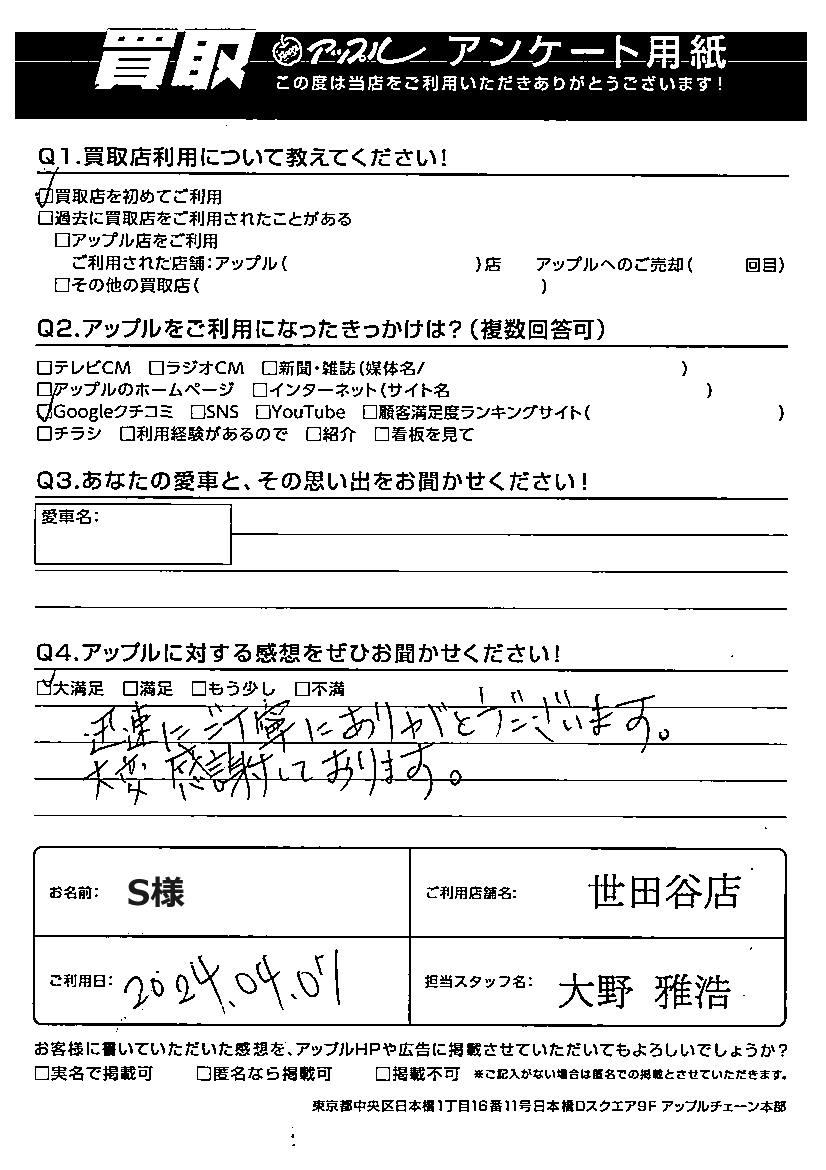 買取 アップル アンケート用紙
この度は当店をご利用いただきありがとうございます!
Q1.買取店利用について教えてください!
☑買取店を初めてご利用
□過去に買取店をご利用されたことがある
□アップル店をご利用
ご利用された店舗:アップル( )店 アップルへのご売却( 回目)
□その他の買取店( )
Q2.アップルをご利用になったきっかけは?(複数回答可)
□テレビCM □ラジオCM □新聞・雑誌(媒体名/ )
□アップルのホームページ □インターネット(サイト名 )
☑Googleクチコミ □SNS □YouTube □顧客満足度ランキングサイト( )
□チラシ □利用経験があるので □紹介 □看板を見て
Q3.あなたの愛車と、その思い出をお聞かせください!
愛車名:
Q4.アップルに対する感想をぜひお聞かせください!
☑大満足 □満足 □もう少し □不満
迅速にご丁寧にありがとうございます。
大変感謝しております。
お名前: S様 ご利用店舗名: 世田谷店
ご利用日: 2024.04.07 担当スタッフ名: 大野 雅浩
お客様に書いていただいた感想を、アップルHPや広告に掲載させていただいてもよろしいでしょうか?
□実名で掲載可 □匿名なら掲載可 □掲載不可 ※ご記入がない場合は匿名での掲載とさせていただきます。
東京都中央区日本橋1丁目16番11号日本橋Dスクエア9F アップルチェーン本部